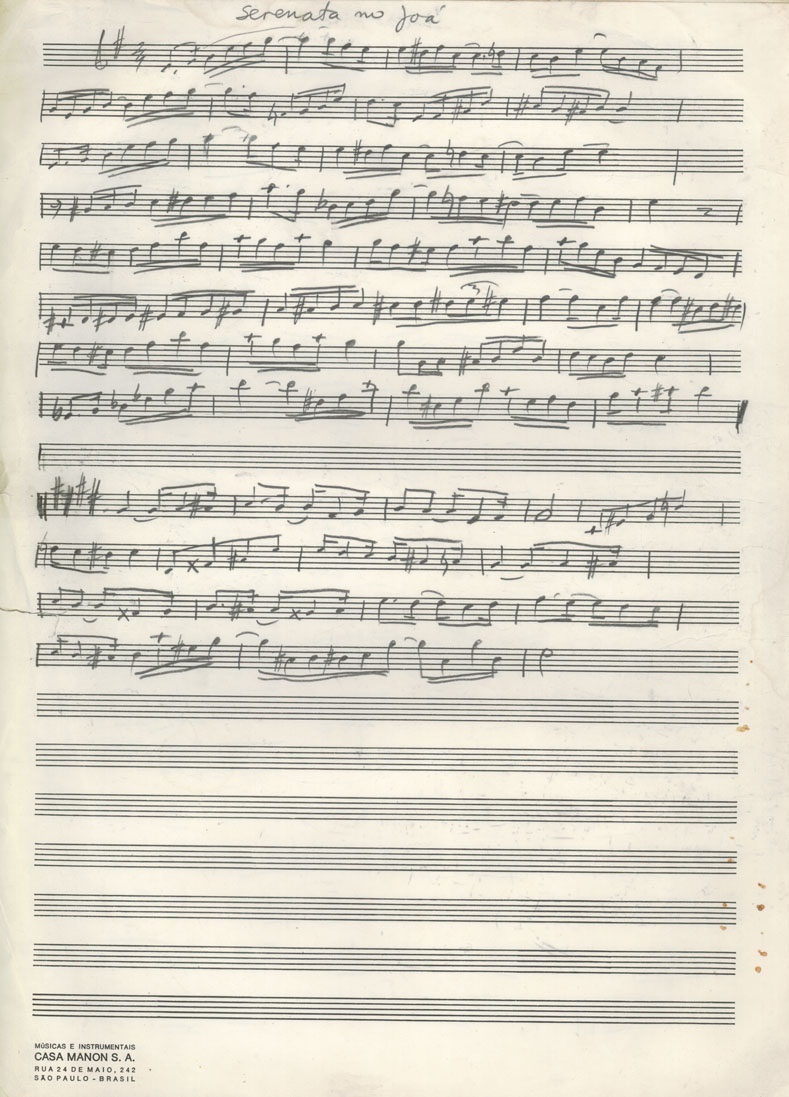 Serenata no Joá
MÚSICAS E INSTRUMENTAIS
CASA MANON S. A.
RUA 24 DE MAIO, 242
SÃO PAULO - BRASIL